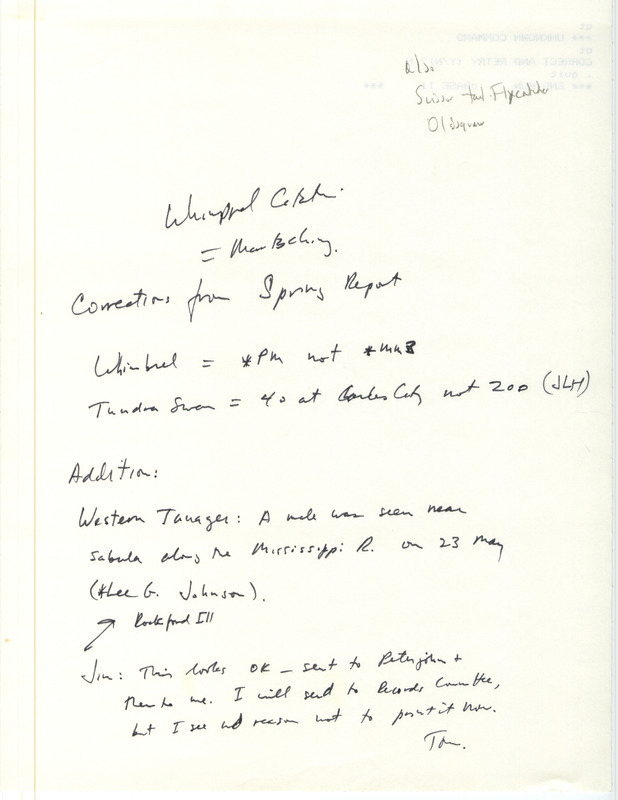 Also
Scissor-tail Flycatcher
Oldsquaw
=
Corrections from Spring Report
Whimbrel = *PM not *MMB
Tundra Swan = 40 at Charles City not 200 (JLH)
Addition:
Western Tanager: A male was seen near
Sabula along the Mississippi R. on 23 May
(*Lee G. Johnson).
Rockford Ill
Jim: This looks OK - sent to Peterjohn +
then to me. I will send to Records Committee,
but I see no reason not to print it now.
Tom.